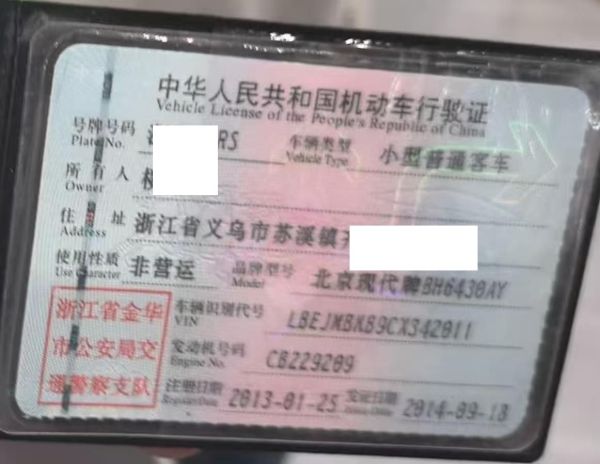 中华人民共和国机动车行驶证
Vehicle License of the People's Republic of China
号牌号码 RS 车辆类型 小型普通客车
Plate No. Vehicle Type
所有人
Owner
住址 浙江省义乌市苏溪镇
Address
使用性质 非营运 品牌型号 北京现代牌BH6430AY
Use Character Model
浙江省金华 车辆识别代号 LBEJMBKB9CX342011
VIN
市公安局交 发动机号码 CB229209
Engine No.
通警察支队 注册日期 2013-01-25 发证日期 2014-09-18
Register Date Issue Date